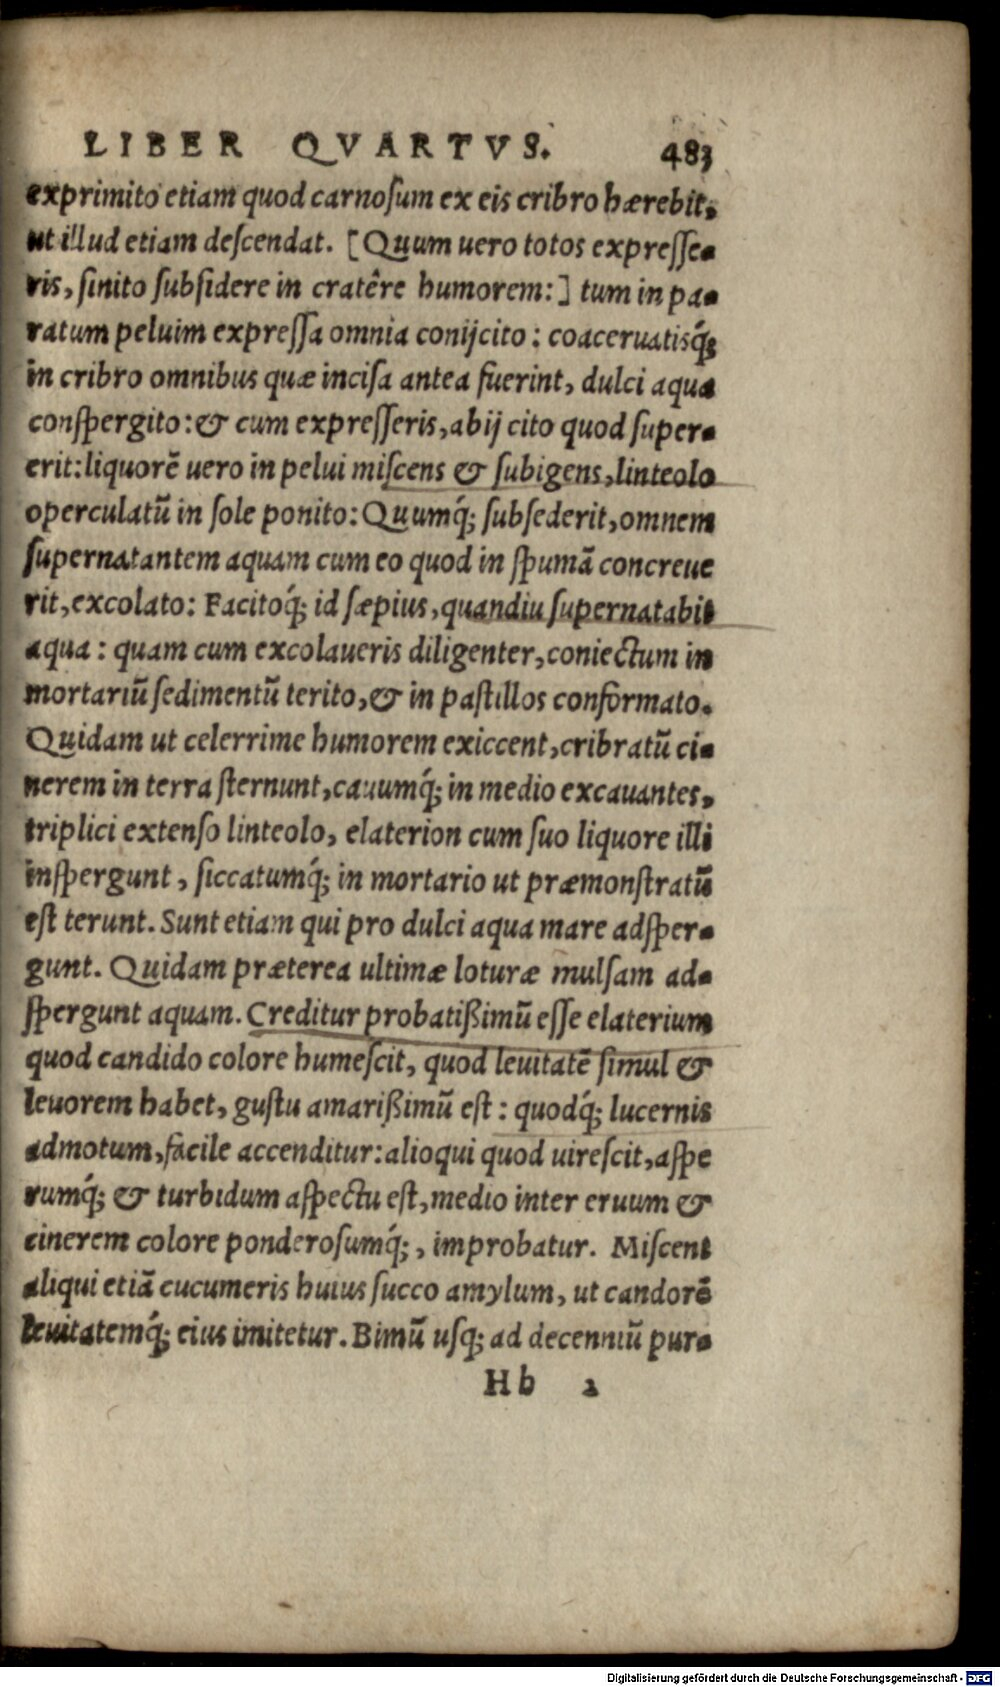 LIBER QVARTVS. 483
exprimito etiam quod carnosum ex eis cribro hærebit,
ut illud etiam descendat. [Quum uero totos expresse-
ris, sinito subsidere in cratêre humorem:] tum in pa-
ratum peluim expressa omnia conijcito: coaceruatisq́;
in cribro omnibus quæ incisa antea fuerint, dulci aqua
conspergito: & cum expresseris, abij cito quod super-
erit: liquorẽ uero in pelui miscens & subigens, linteolo
operculatũ in sole ponito: Quumq́; subsederit, omnem
supernatantem aquam cum eo quod in spumã concreue
rit, excolato: Facitoq́; id sæpius, quandiu supernatabit
aqua: quam cum excolaueris diligenter, coniectum in
mortariũ sedimentũ terito, & in pastillos conformato.
Quidam ut celerrime humorem exiccent, cribratũ ci-
nerem in terra sternunt, cauumq́; in medio excauantes,
triplici extenso linteolo, elaterion cum suo liquore illi
inspergunt, siccatumq́; in mortario ut præmonstratũ
est terunt. Sunt etiam qui pro dulci aqua mare adsper-
gunt. Quidam præterea ultimæ loturæ mulsam ad-
spergunt aquam. Creditur probatißimũ esse elaterium
quod candido colore humescit, quod leuitatẽ simul &
leuorem habet, gustu amarißimũ est: quodq́; lucernis
admotum, facile accenditur: alioqui quod uirescit, aspe
rumq́; & turbidum aspectu est, medio inter eruum &
cinerem colore ponderosumq́;, improbatur. Miscent
aliqui etiã cucumeris huius succo amylum, ut candorẽ
leuitatemq́; eius imitetur. Bimũ usq; ad decenniũ pur-
Hb 2
Digitalisierung gefördert durch die Deutsche Forschungsgemeinschaft - DFG